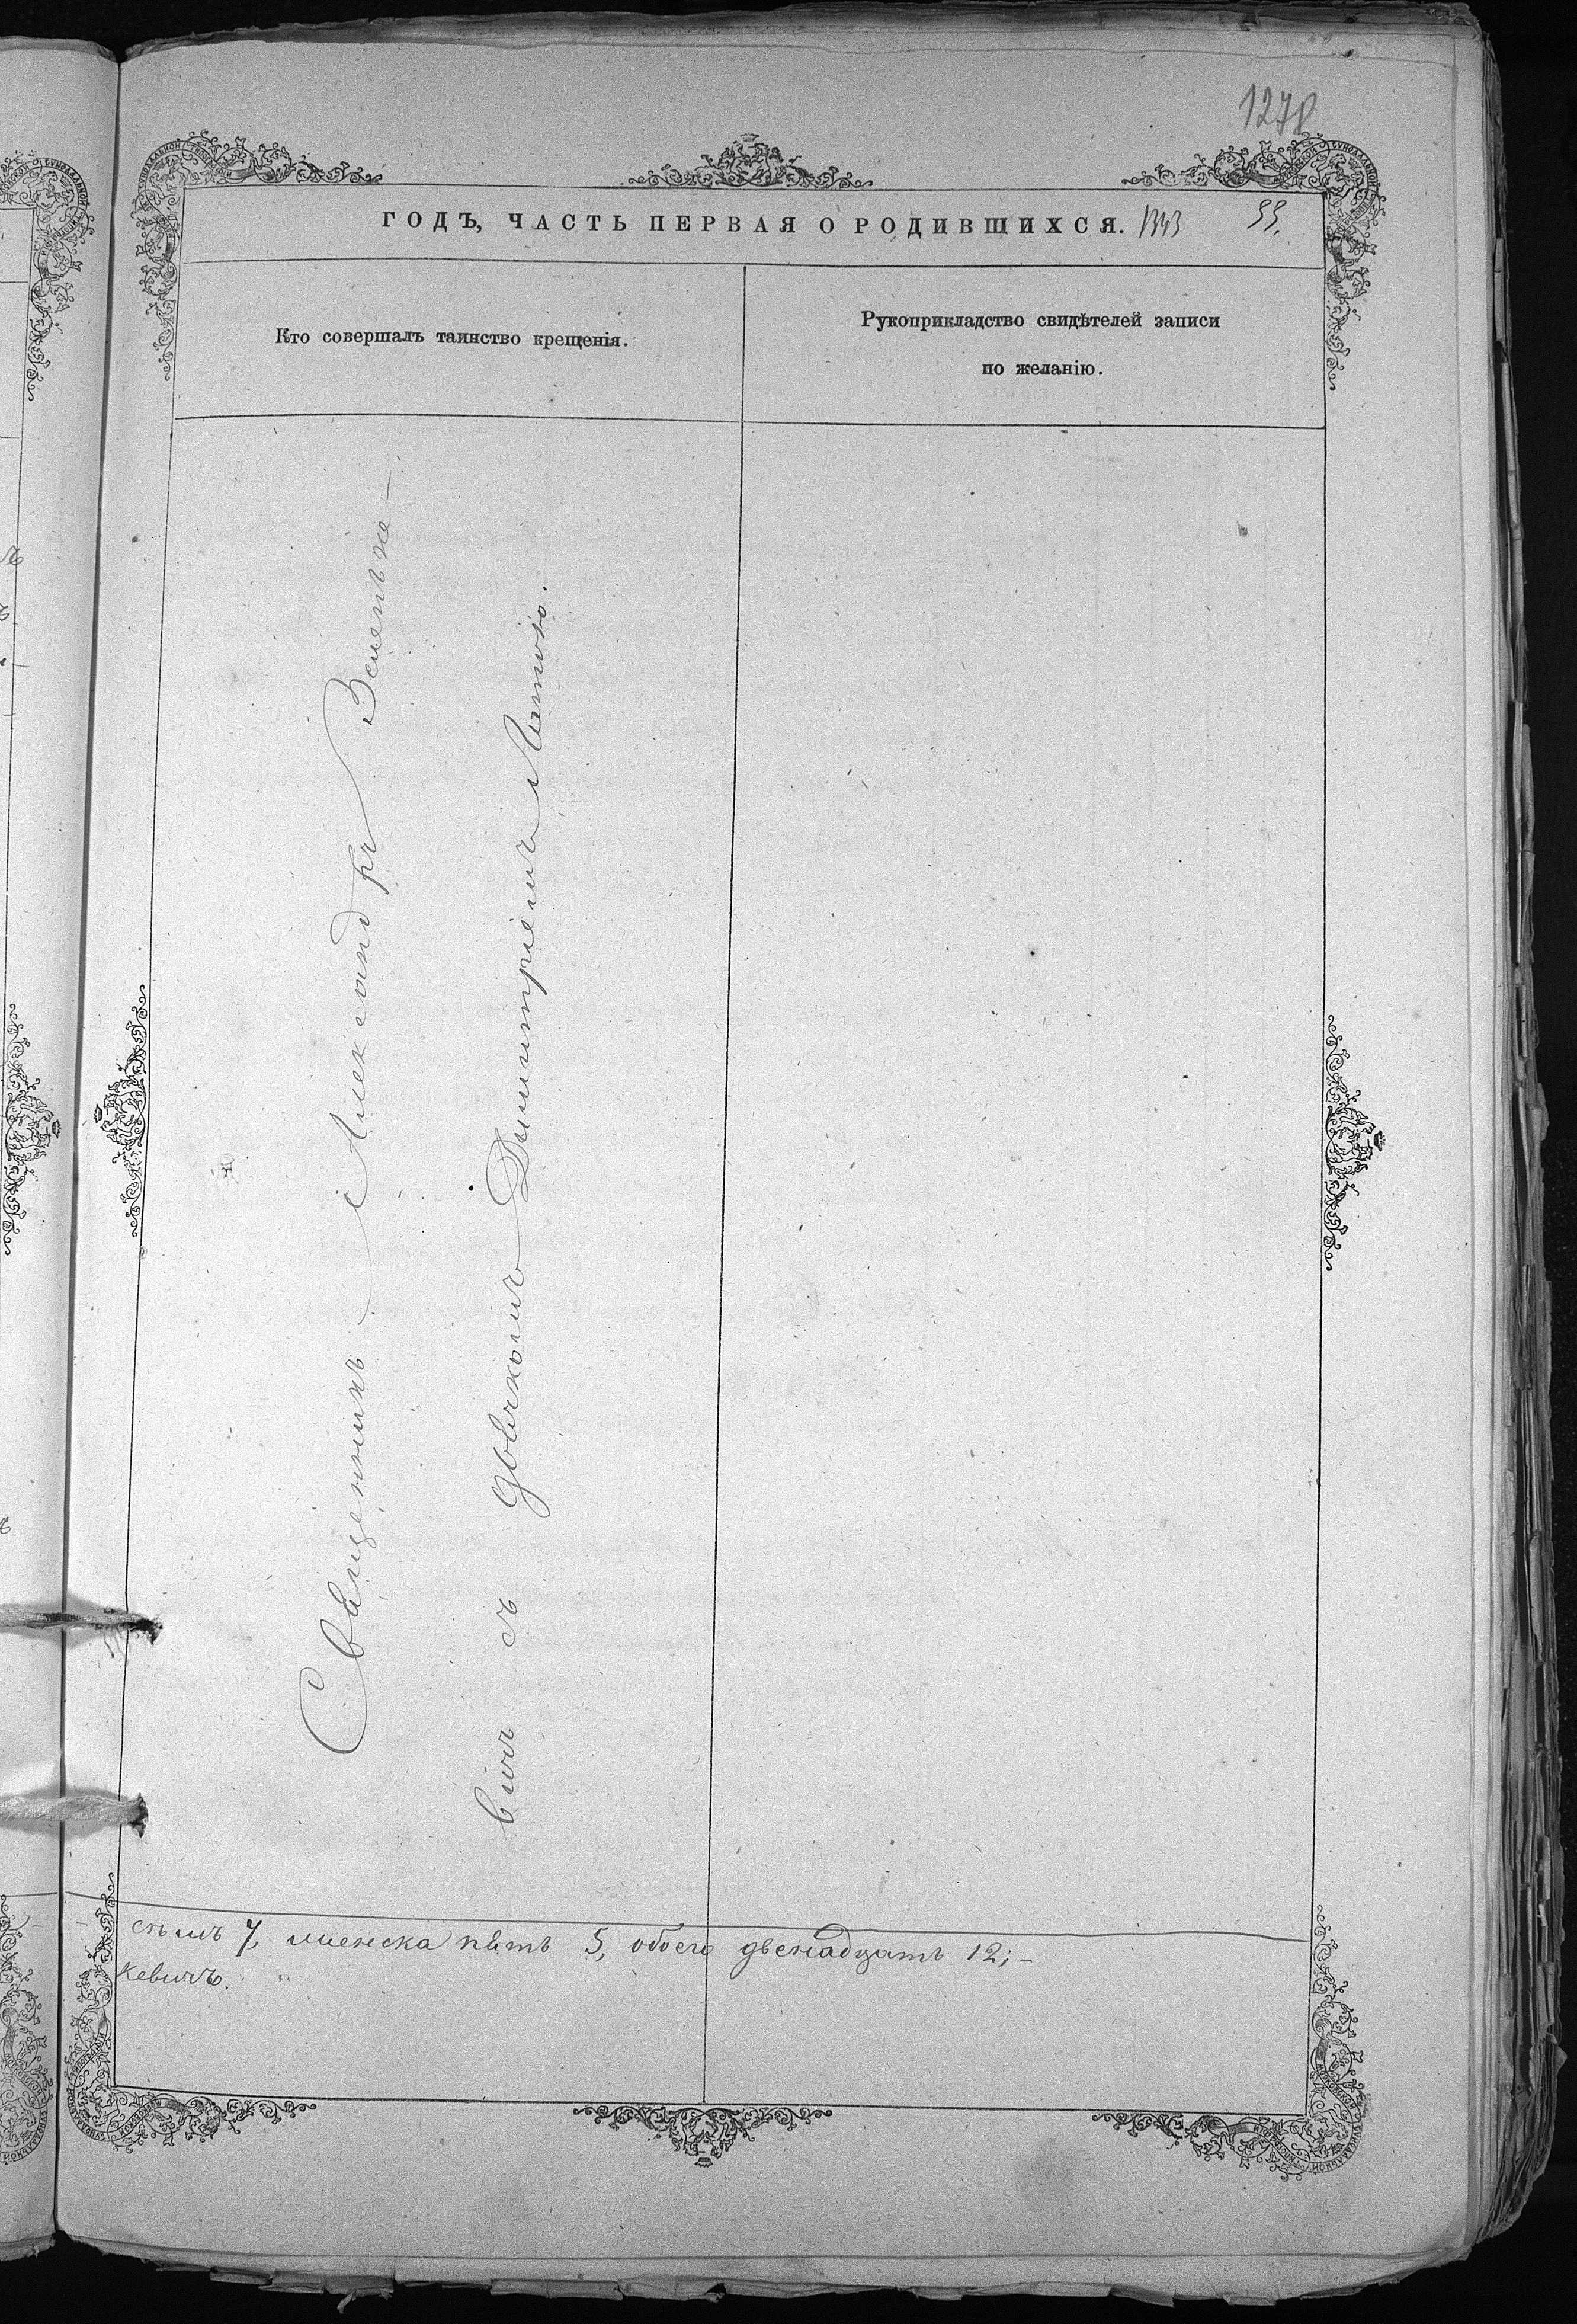 1278
ГОДЪ, ЧАСТЬ ПЕРВАЯ О РОДИВШИХСЯ. 1343 33.
Кто совершалъ таинство крещенія.
Рукоприкладство свидѣтелей записи
по желанію.
Священникъ Александръ Зенько-
вичъ съ дьячкомъ Димитріемъ
семь 7, женска пять 5, обоего двенадцать 12;-
кевичъ.